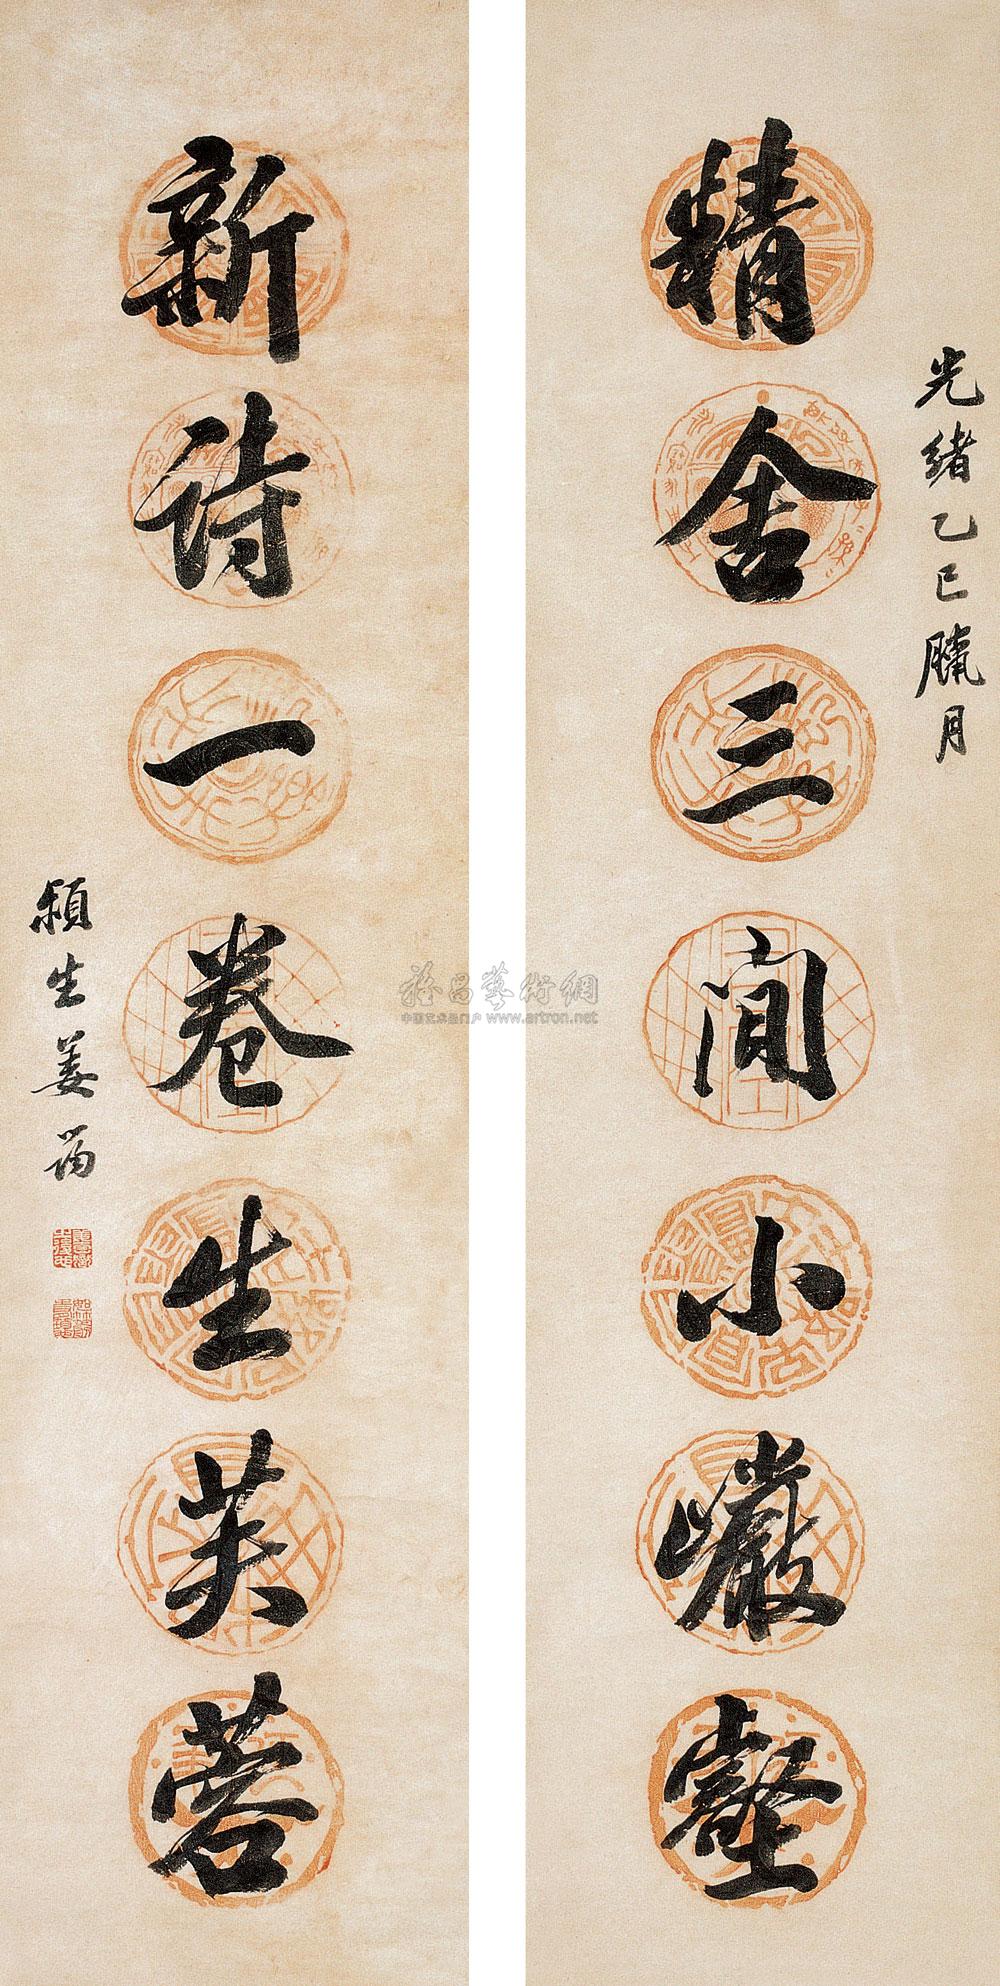 光緒乙巳臘月
精舍三間小巖壑
新詩一卷生芙蓉
穎生姜筠
雅昌藝術網
中国艺术品门户 www.artron.net